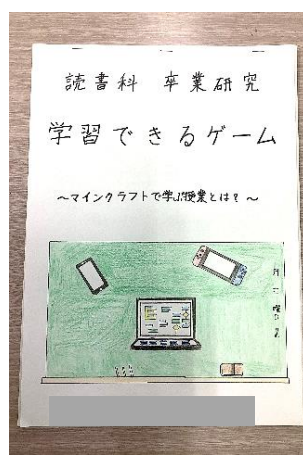 読書科 卒業研究
学習できるゲーム
～マインクラフトで学ぶ授業とは？～